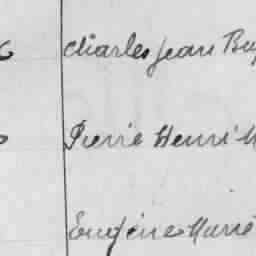 Charles Jean
Pierre Henri
Eugène Marie